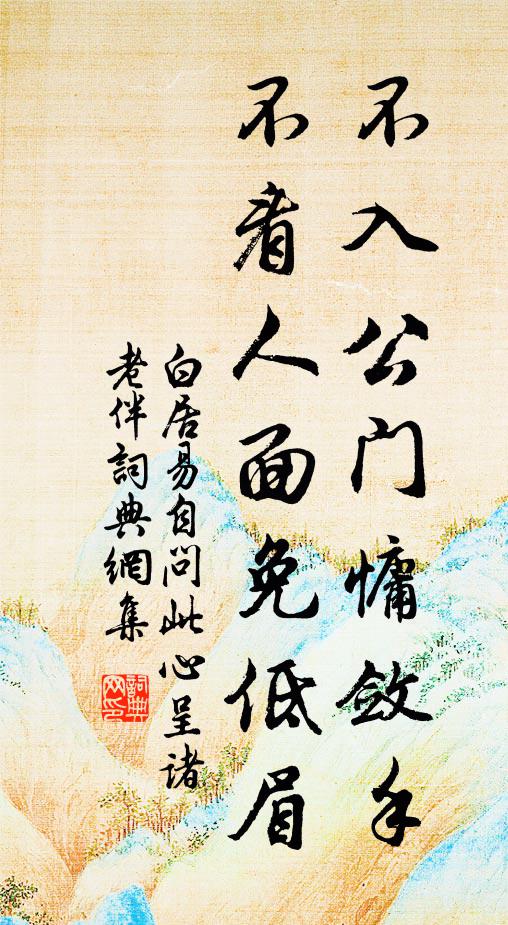 不入公門慵斂手
不看人面免低眉
白居易自問此心呈諸
老伴詞典網集
詞典
网印